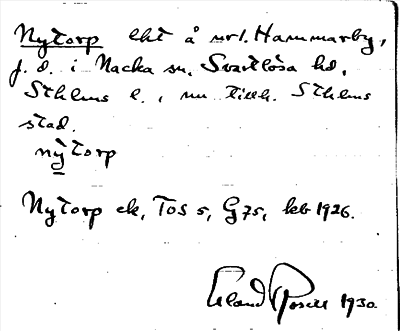 Nytorp lht å nr 1. Hammarby,
f. d. i Nacka sn, Svartlösa hd,
Sthlms l., nu tillh. Sthlms
stad.
nỳtorp
Nytorp ek, Tos 5, G75, kb 1926.
Erland Rosell 1930.